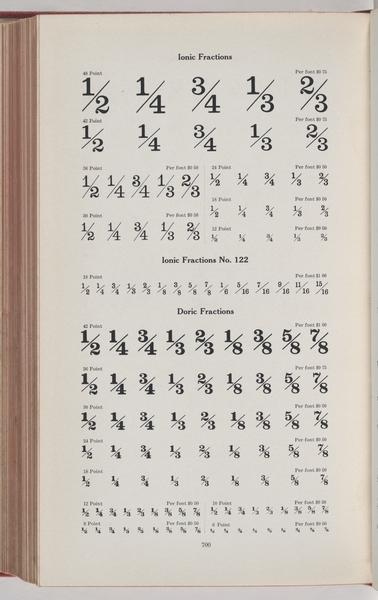 Ionic Fractions
48 Point Per font $0 75
1/2 1/4 3/4 1/3 2/3
42 Point Per font $0 75
1/2 1/4 3/4 1/3 2/3
36 Point Per font $0 50
1/2 1/4 3/4 1/3 2/3
30 Point Per font $0 50
1/2 1/4 3/4 1/3 2/3
24 Point Per font $0 50
1/2 1/4 3/4 1/3 2/3
18 Point Per font $0 50
1/2 1/4 3/4 1/3 2/3
12 Point Per font $0 50
1/2 1/4 3/4 1/3 2/3
Ionic Fractions No. 122
18 Point Per font $1 00
1/2 1/4 3/4 1/3 2/3 1/8 3/8 5/8 7/8 1/6 5/16 7/16 9/16 11/16 15/16
Doric Fractions
42 Point Per font $1 00
1/2 1/4 3/4 1/3 2/3 1/8 3/8 5/8 7/8
36 Point Per font $0 75
1/2 1/4 3/4 1/3 2/3 1/8 3/8 5/8 7/8
30 Point Per font $0 50
1/2 1/4 3/4 1/3 2/3 1/8 3/8 5/8 7/8
24 Point Per font $0 50
1/2 1/4 3/4 1/3 2/3 1/8 3/8 5/8 7/8
18 Point Per font $0 50
1/2 1/4 3/4 1/3 2/3 1/8 3/8 5/8 7/8
12 Point Per font $0 50
1/2 1/4 3/4 1/3 2/3 1/8 3/8 5/8 7/8
10 Point Per font $0 50
1/2 1/4 3/4 1/3 2/3 1/8 3/8 5/8 7/8
8 Point Per font $0 50
1/2 1/4 3/4 1/3 2/3 1/8 3/8 5/8 7/8
6 Point Per font $0 50
700